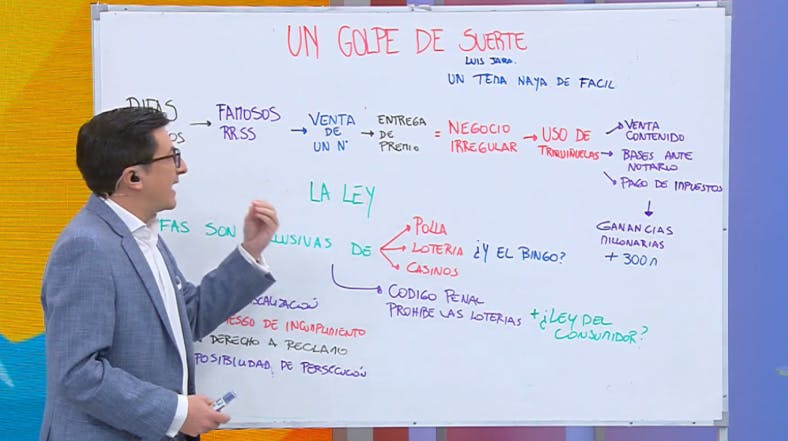 UN GOLPE DE SUERTE
LUIS JARA.
UN TEMA NAYA DE FACIL
FAMOSOS
RRSS
VENTA
DE
UN N°
ENTREGA
DE
PREMIO
= NEGOCIO
IRREGULAR
USO DE
TRIQUIÑUELAS
VENTA
CONTENIDO
BASES ANTE
NOTARIO
PAGO DE IMPUESTOS
GANANCIAS
MILLONARIAS
+ 300
LA LEY
FAS SON LUSIVAS DE
POLLA
LOTERIA
CASINOS
¿Y EL BINGO?
CODIGO PENAL
PROHIBE LAS LOTERIAS
+ ¿LEY DEL
CONSUMIDOR?
CALIZACIÓN
ESGO DE INCUMPLIMIENTO
DERECHO A RECLAMO
POSIBILIDAD DE PERSECUCIÓN